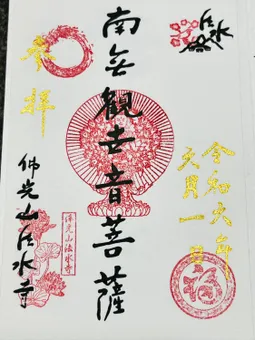 奉拝
南無観世音菩薩
法水
令和六年
元月一日
佛光山法水寺
佛光山法水寺
福